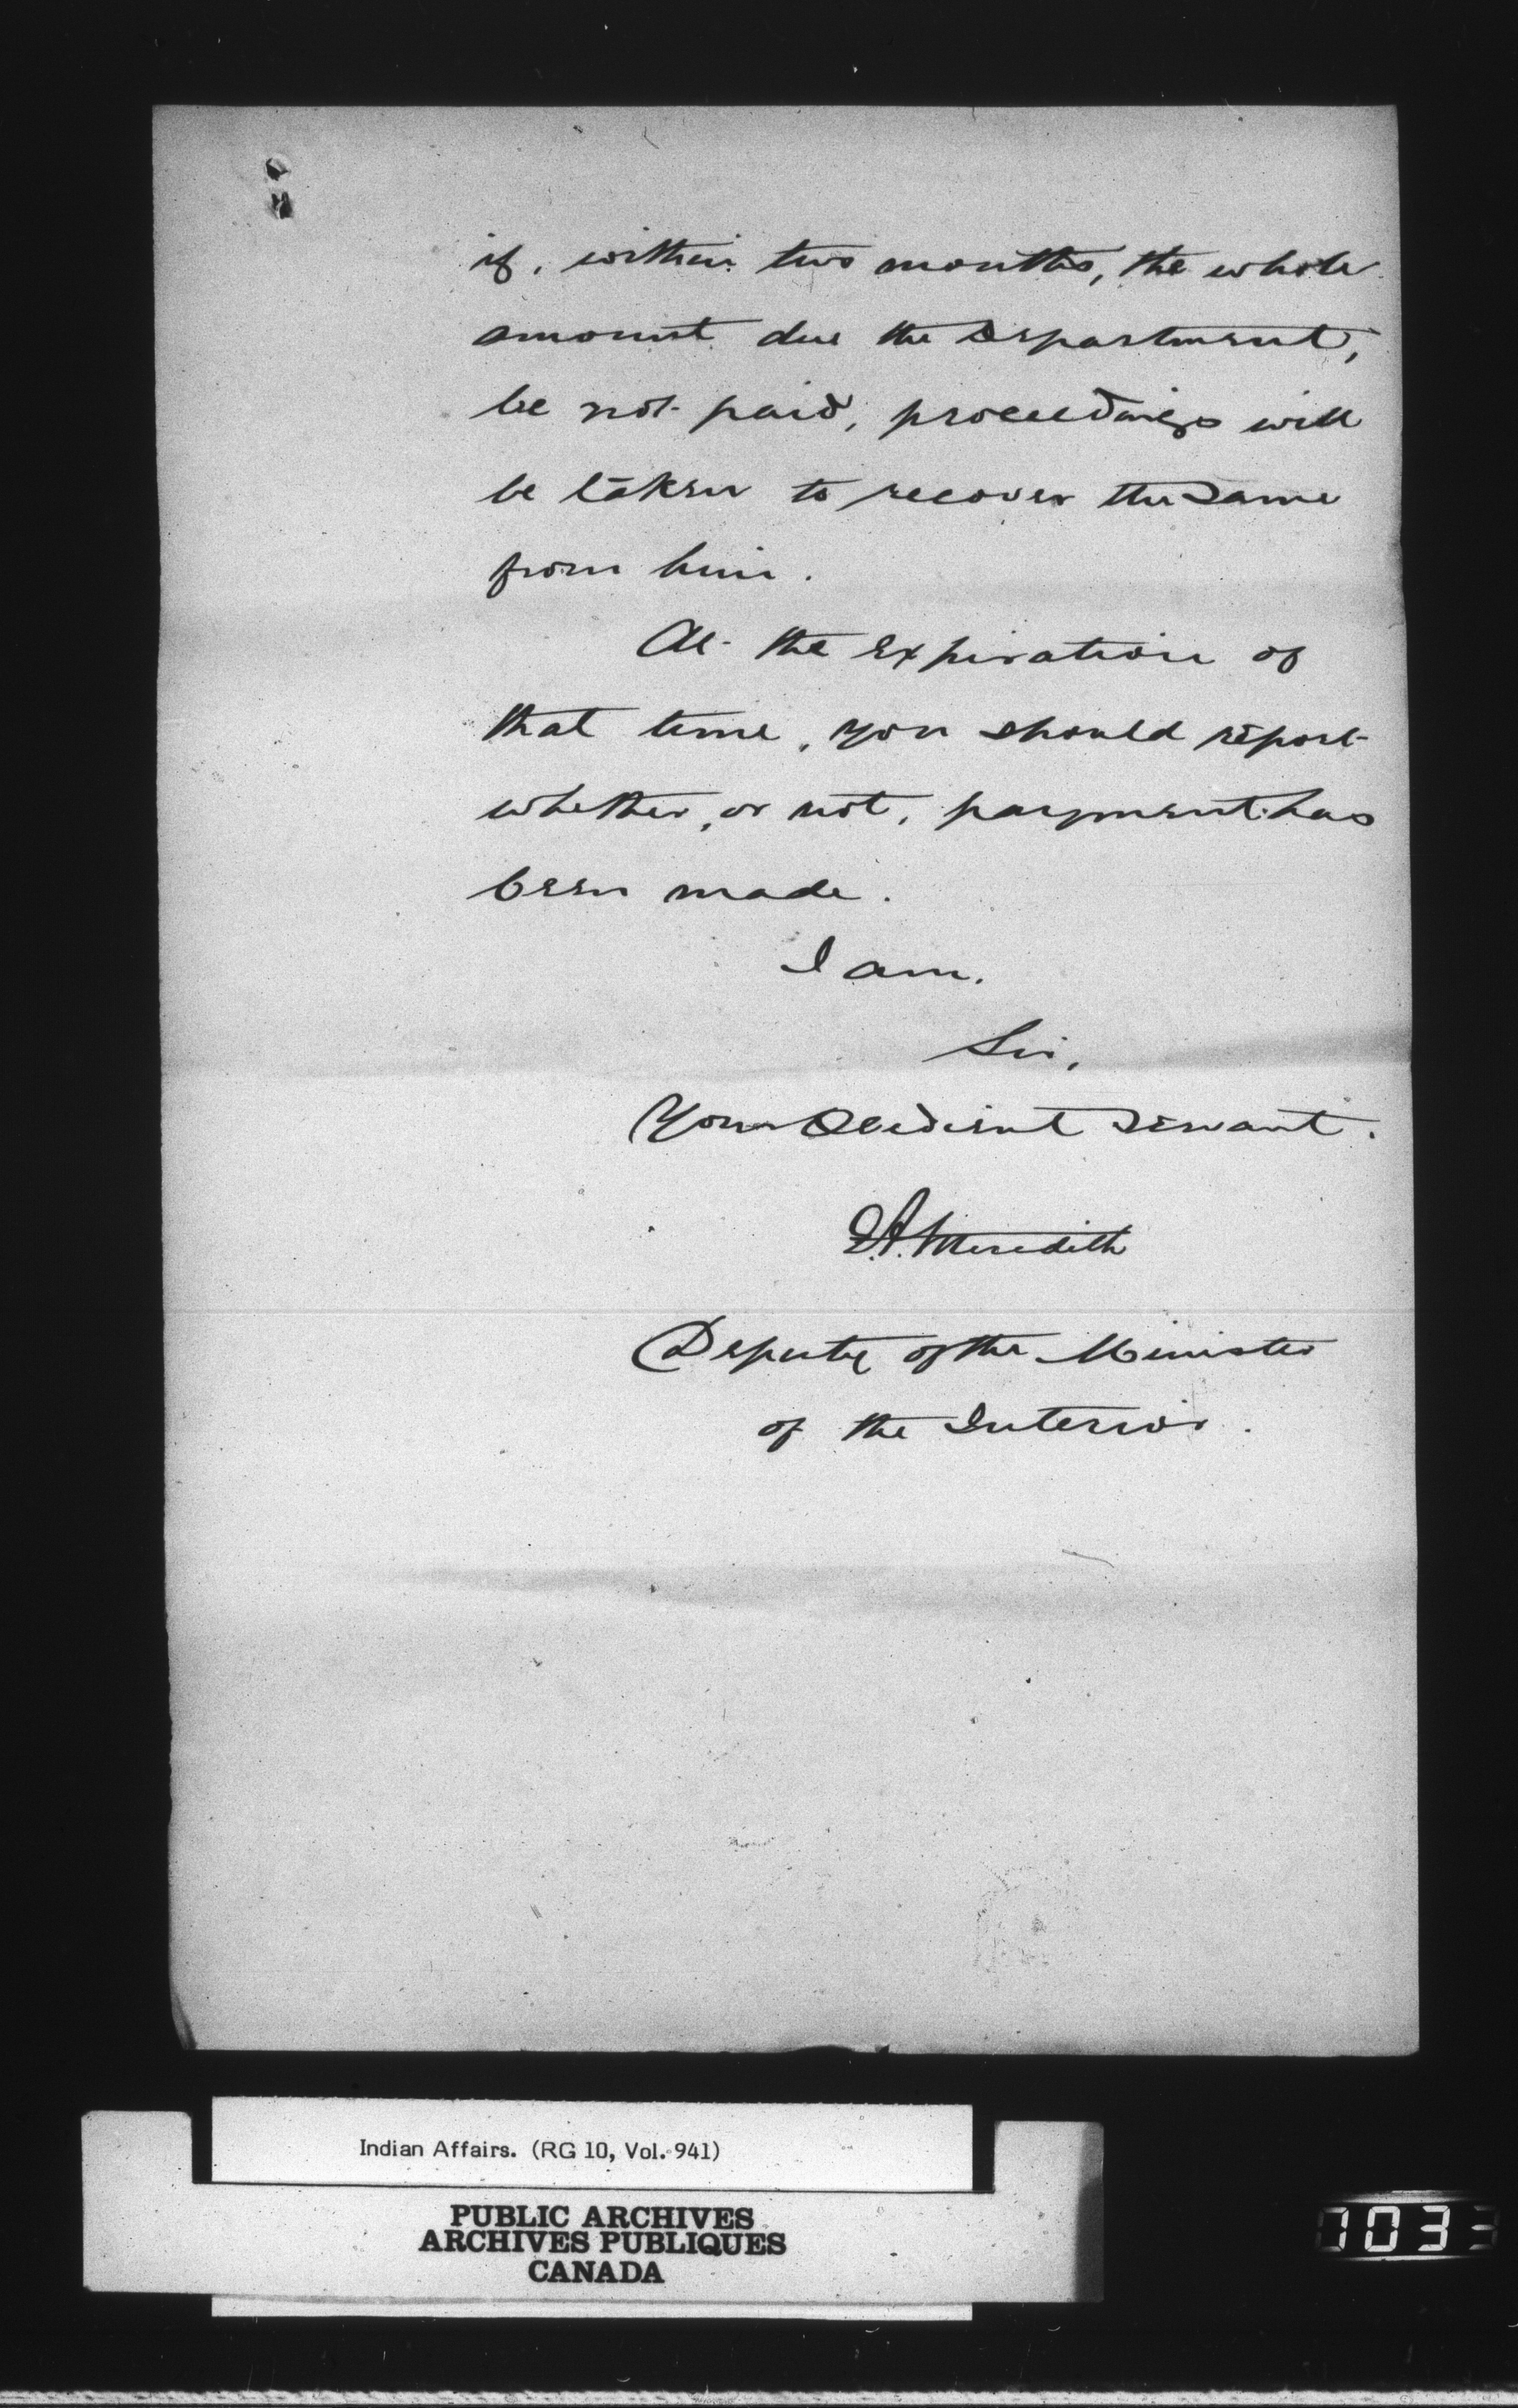 if, within two months, the whole
amount due the Department,
be not paid, proceedings will
be taken to recover the same
from him.
At the expiration of
that time, you should report
whether, or not, payment has
been made.
I am,
Sir,
Your Obedient Servant.
E.A. Meredith
Deputy of the Minister
of the Interior.
Indian Affairs. (RG 10, Vol. 941)
PUBLIC ARCHIVES
ARCHIVES PUBLIQUES
CANADA